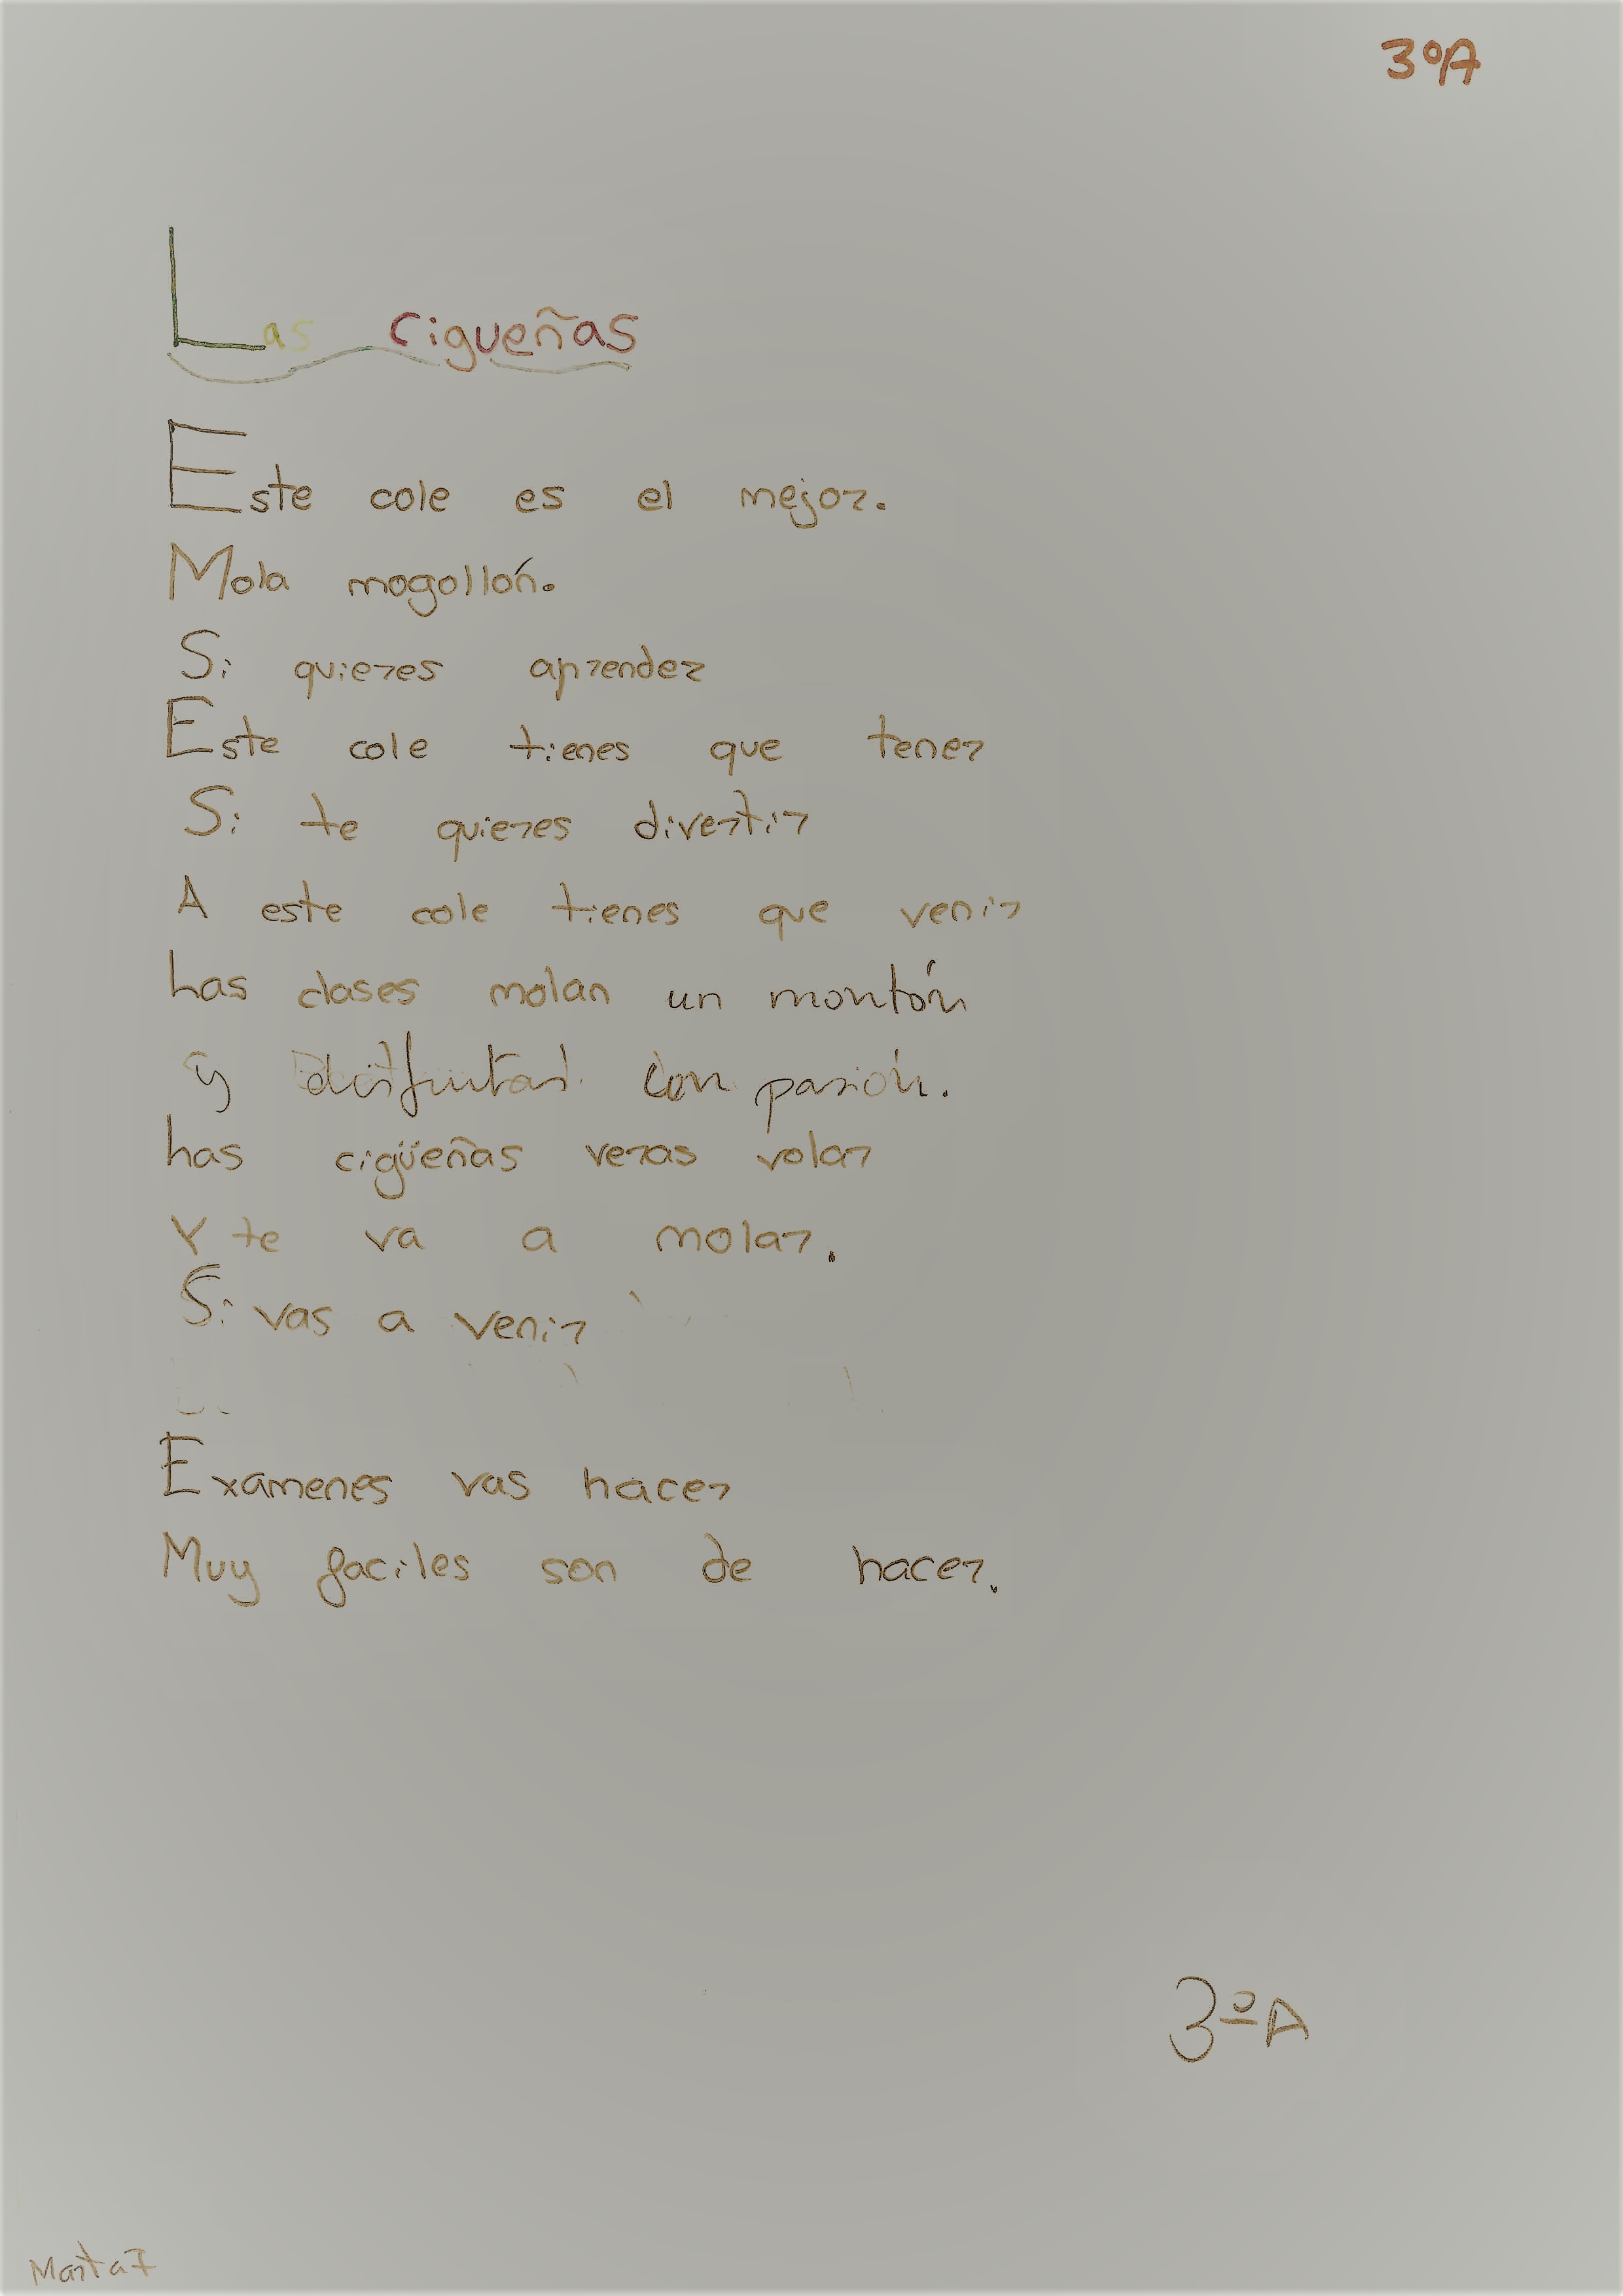 3ºA
Las cigueñas
Este cole es el mejor.
Mola mogollón.
Si quieres aprender
Este cole tienes que tener
Si te quieres divertir
A este cole tienes que venir
Las clases molan un montón
y disfrutas con pasión.
Las cigüeñas veras volar
Y te va a molar.
Si vas a venir
Exámenes vas hacer
Muy faciles son de hacer.
3ºA
Marta F